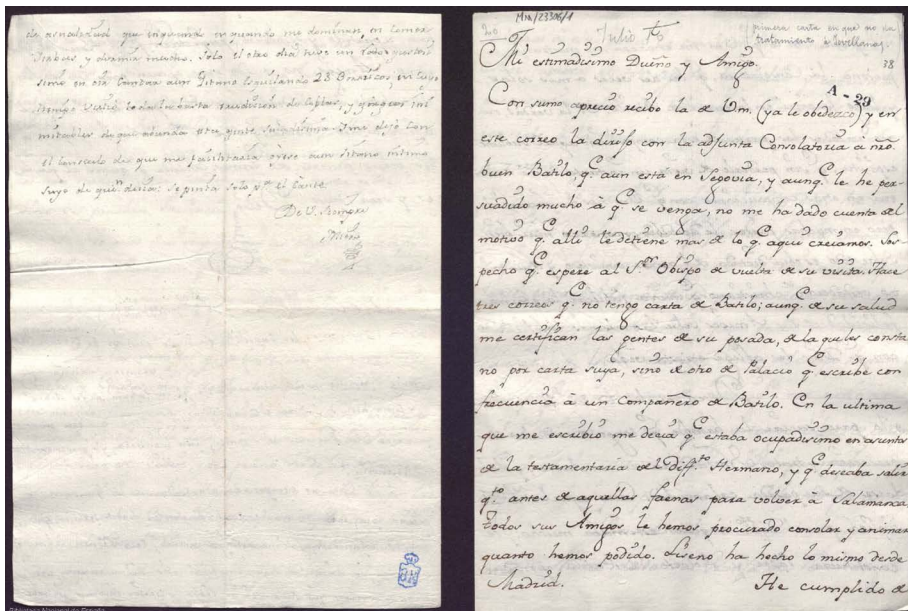 que me dominan, en
y ahorra mucho. Solo el otro dia tuve un rato gustosi-
simo en oir cantar a un Gitano Esquilando 28 Borricos, en cuyo
tiempo vertió toda la vasta erudicion de coplas, y gracias ini-
mitables de que abunda esta gente suzissima. Y me dejó con
el consuelo de que me facilitaria oyese a un Gitano intimo
suyo de qn. decia: se pinta solo pa. el Cante.
De V. siempre
Mireo
Mss/23306/1
20
Julio 78
primera carta en que no da
tratamiento a Sevillano,
38
Mi estimadisimo Dueño y Amigo.
A-29
Con sumo aprecio recibo la de Vm. (ya le obedezco) y en
este correo la dirijo con la adjunta Consolatoria à nro.
buen Batilo, q.e aun está en Segovia, y aunq.e le he per-
suadido mucho à q.e se venga, no me ha dado cuenta del
motivo q.e alli le detiene mas de lo q.e aqui creiamos. Sos-
pecho q.e espere al S.or Obispo de vuelta de su visita. Hace
tres correos q.e no tengo carta de Batilo; aunq.e de su salud
me certifican las gentes de su posada, de la que les consta
no por carta suya, sino de otro de Palacio q.e escribe con
frecuencia à un Compañero de Batilo. En la ultima
que me escribió me decia q.e estaba ocupadisimo en asuntos
de la testamentaria del Diff.to Hermano, y q.e deseaba salir
q.to antes de aquellas faenas para volver à Salamanca.
Todos sus Amigos le hemos procurado consolar y animar
quanto hemos podido. Liseno ha hecho lo mismo desde
Madrid. He cumplido de
Biblioteca Nacional de España